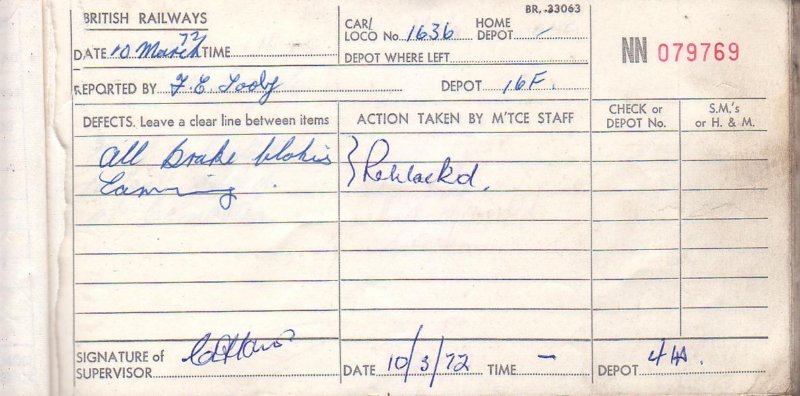 BRITISH RAILWAYS
BR. 33063
DATE 10 March 72 TIME
CAR/ LOCO No. 1636 HOME DEPOT -
DEPOT WHERE LEFT
NN 079769
REPORTED BY F. E. DEPOT 16F.
DEFECTS. Leave a clear line between items
ACTION TAKEN BY M'TCE STAFF
CHECK or DEPOT No.
S.M.'s or H. & M.
All brake bloks
} Reblockd.
SIGNATURE of SUPERVISOR
DATE 10/3/72 TIME —
DEPOT